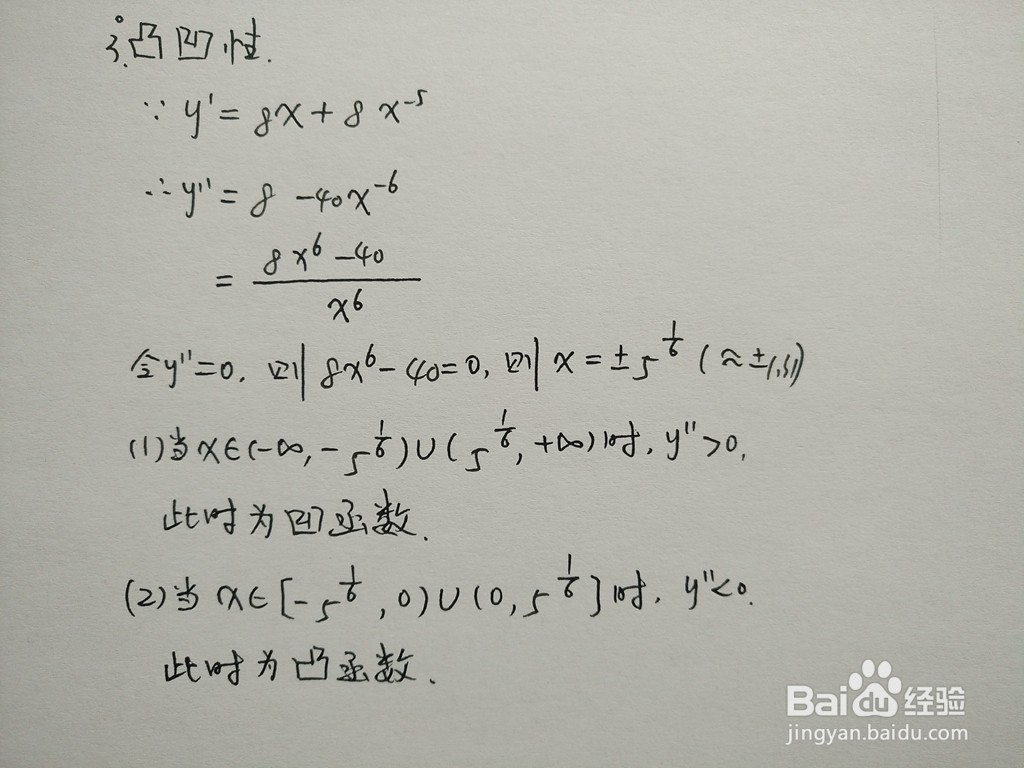 3.凸凹性.
∵ y' = 8x + 8x⁻⁵
∴ y'' = 8 - 40x⁻⁶
= (8x⁶ - 40)/x⁶
令y''=0, 则8x⁶-40=0, 则x=±5^(1/6) (≈±1.31)
(1)当x∈(-∞, -5^(1/6))∪(5^(1/6), +∞)时, y''>0,
此时为凹函数.
(2)当x∈[-5^(1/6), 0)∪(0, 5^(1/6)]时, y''<0.
此时为凸函数.
Bai du 经验
jingyan.baidu.com